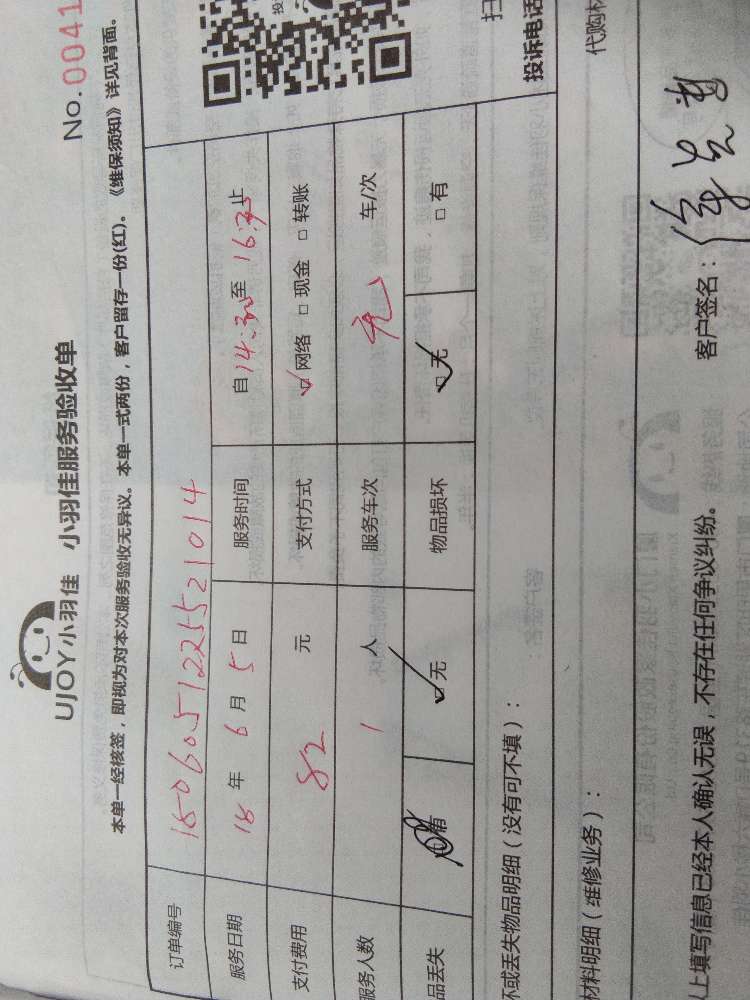 UJOY小羽佳 小羽佳服务验收单
No.0041
本单一经核签，即视为对本次服务验收无异议。本单一式两份，客户留存一份(红)。《维保须知》详见背面。
订单编号 180605122552 1014
服务日期 18 年 6 月 5 日 服务时间 自14:30至16:30止
支付费用 82 元 支付方式 网络 现金 转账
服务人数 1 人 服务车次 元 车/次
品丢失 有 无 物品损坏 无 有
坏或丢失物品明细（没有可不填）：
投诉电话
材料明细（维修业务）：
代购材
上填写信息已经本人确认无误，不存在任何争议纠纷。
客户签名：